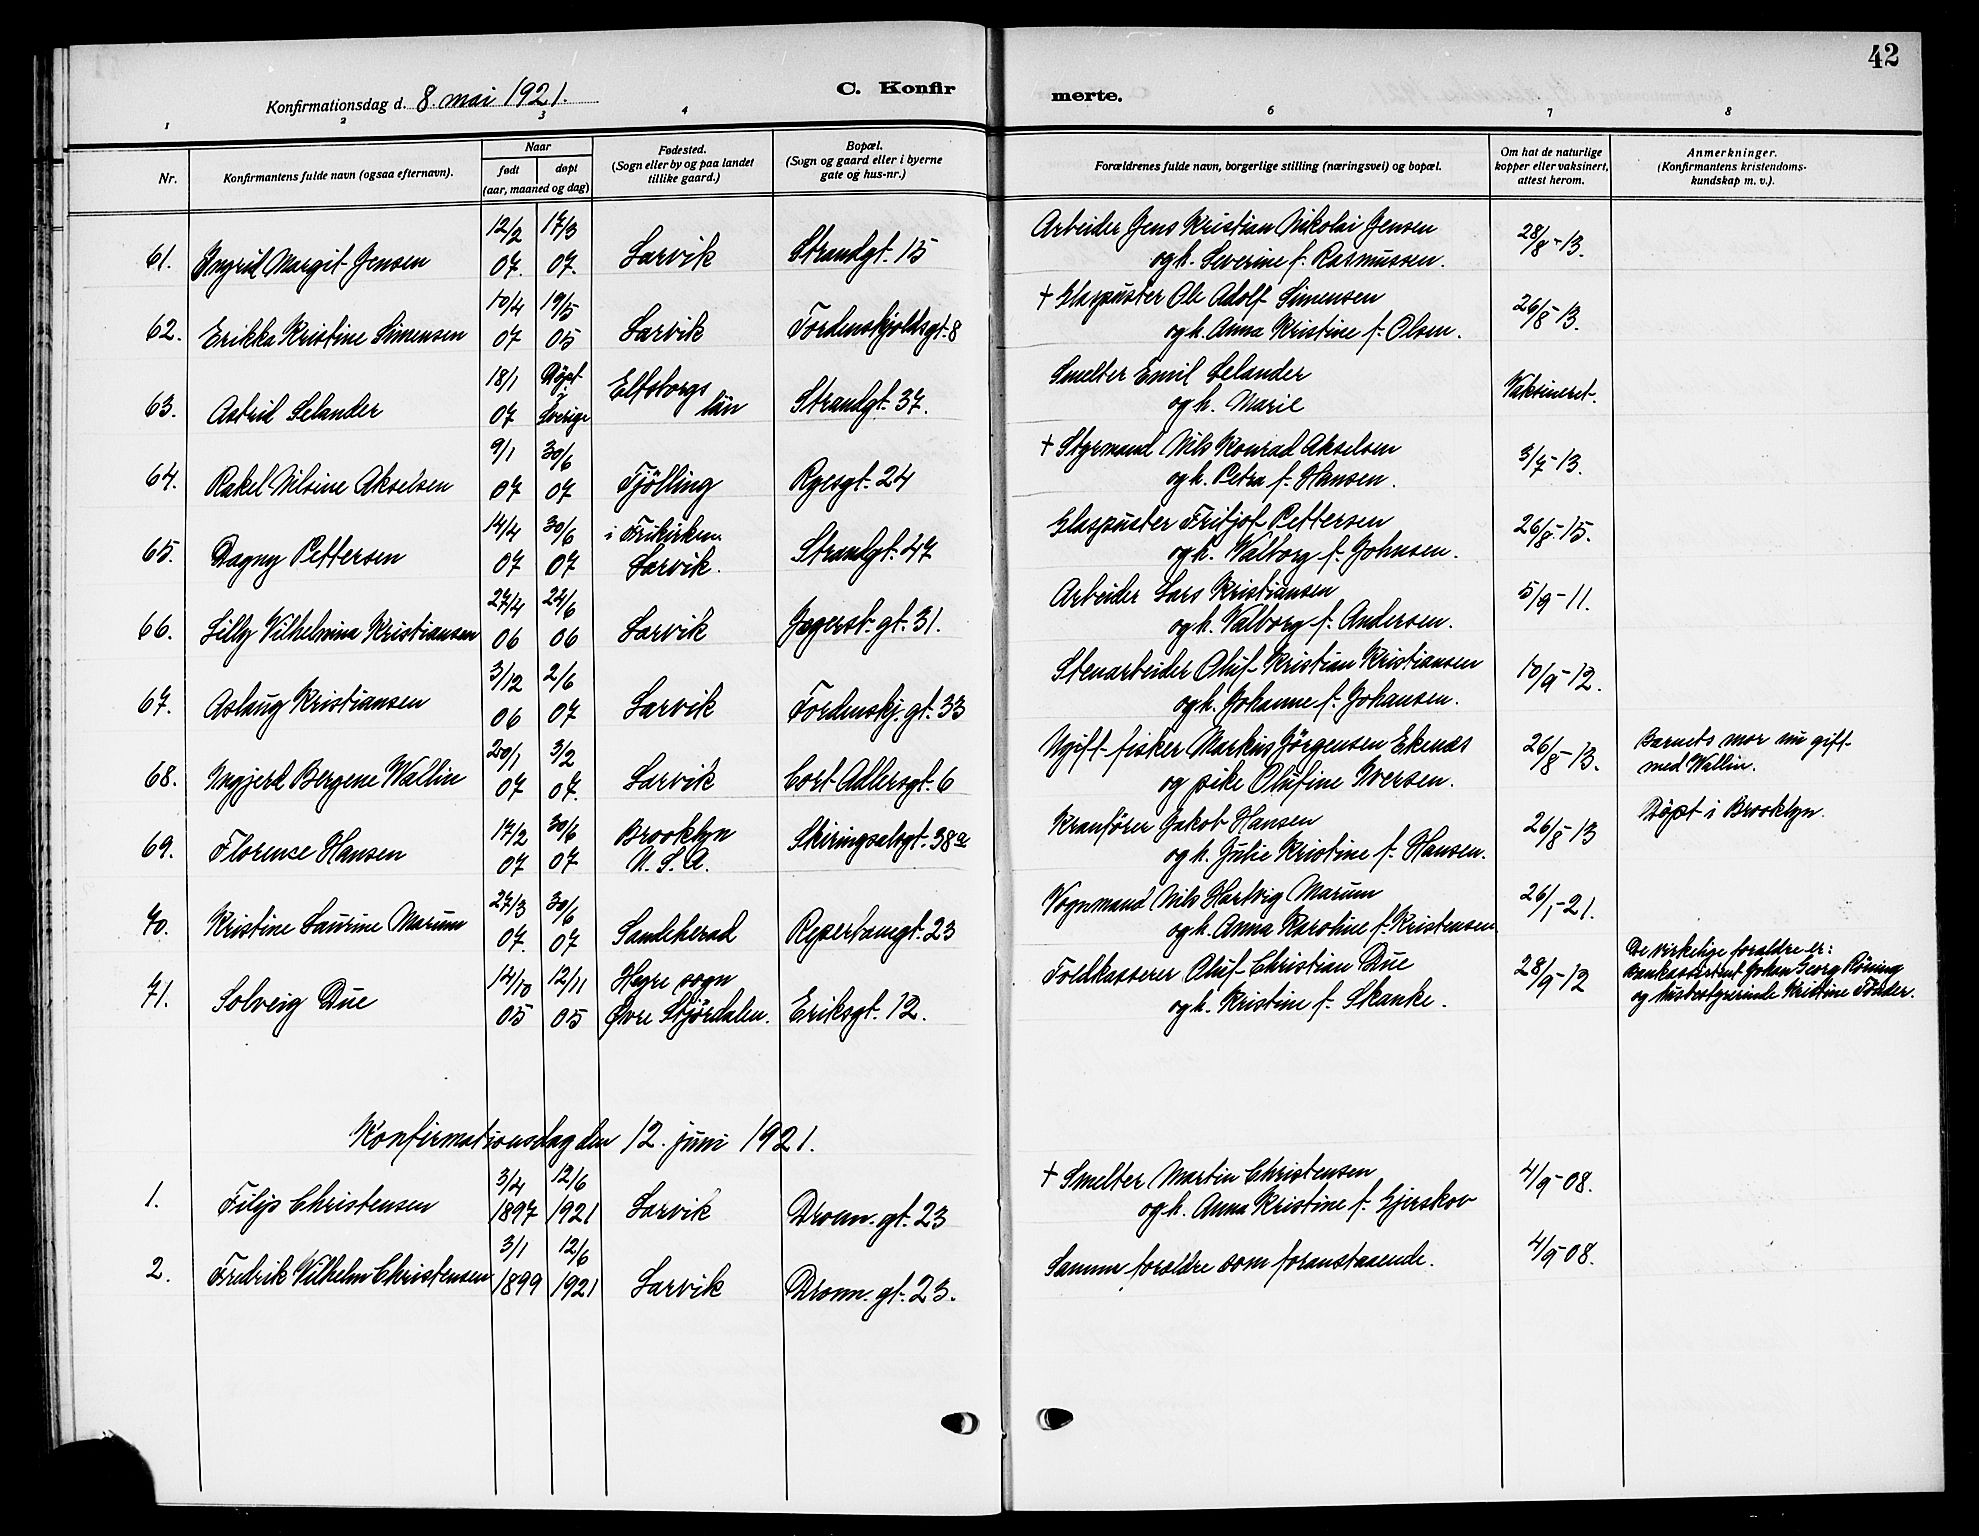 42
Konfirmationsdag d. 8. mai 1921.
C. Konfir
merte.
1 2 3 4 6 7 8
Nr.
Konfirmantens fulde navn (ogsaa efternavn).
Naar
født døpt
(aar, maaned og dag)
Fødested.
(Sogn eller by og paa landet
tillike gaard.)
Bopæl.
(Sogn og gaard eller i byerne
gate og hus-nr.)
Forældrenes fulde navn, borgerlige stilling (næringsvei) og bopæl.
Om hat de naturlige
kopper eller vaksinert,
attest herom.
Anmerkninger.
(Konfirmantens kristendoms-
kundskap m. v.).
12/2 17/3 Arbeider Jens Kristian Nikolai Jensen
61. Ingrid Margit Jensen 07. 07. Larvik Strandgt. 15 og h. Severine f. Rasmussen. 28/8-13.
10/4 19/5 † Glaspuster Ole Adolf Simensen
62. Erikka Kristine Simensen 07 05 Larvik Tordenskjoldsgt. 8 og h. Anna Kristine f. Olsen. 26/8-13.
18/1 Døpt i Elfsborgs Smelter Emil Selander
63. Astrid Selander 07 Sverige län Strandgt. 37. og h. Marie Vaksineret.
9/1 30/6 † Styrmand Nils Konrad Akselsen
64. Rakel Nilsine Akselsen 07 07 Tjölling Ryesgt. 24 og h. Petra f. Hansen. 3/7-13.
14/4 30/6 i Frikirken Glaspuster Fritjof Pettersen
65. Dagny Pettersen 07 07 Larvik. Strandgt. 47 og h. Valborg f. Johnsen. 26/8-15.
27/4 24/6 Arbeider Lars Kristiansen
66. Lilly Vilhelmina Kristiansen 06 06 Larvik Jegerst. gt. 31. og h. Valborg f. Andersen. 5/9-11.
3/12 2/6 Stenarbeider Oluf Kristian Kristiansen
67. Aslaug Kristiansen 06 07 Larvik Tordenskj. gt. 33 og h. Johanne f. Johansen. 10/9-12.
20/1 3/2 Ugift fisker Markus Jörgensen Ekenæs Barnets mor nu gift
68. Ingjerd Bergene Wallin 07 07. Larvik Cort Adlersgt. 6 og pike Olufine Iversen. 26/8-13. med Wallin.
17/2 30/6 Brooklyn Kranfører Jakob Hansen Døpt i Brooklyn.
69. Florence Hansen 07 07 U. S. A. Skiringsalsgt. 38a og h. Julie Kristine f. Hansen. 26/8-13
27/3 30/6 Vognmand Nils Hartvig Marum
70. Kristine Laurine Marum 07. 07 Sandeherad Reperbanegt. 23 og h. Anna Karoline f. Kristensen 26/1-21.
14/10 12/11 Hegre sogn Toldkasserer Oluf Christian Due De virkelige foraldre er:
71. Solveig Due 05 05 Øvre Stjördalen. Eriksgt. 12. og h. Kristine f. Skanke. 28/9-12 Bankassistent Johan Georg Röning
og husbestyrerinde Kristine Tönder.
Konfirmationsdag den 12. juni 1921.
3/4 12/6 † Smelter Martin Christensen
1. Filip Christensen 1897 1921 Larvik Dronn. gt. 23 og h. Anna Kristine f. Gjerskov 4/9-08.
3/1 12/6
2. Fredrik Vilhelm Christensen 1899 1921 Larvik Dronn. gt. 23. Samme foraldre som foranstaaende. 4/9-08.